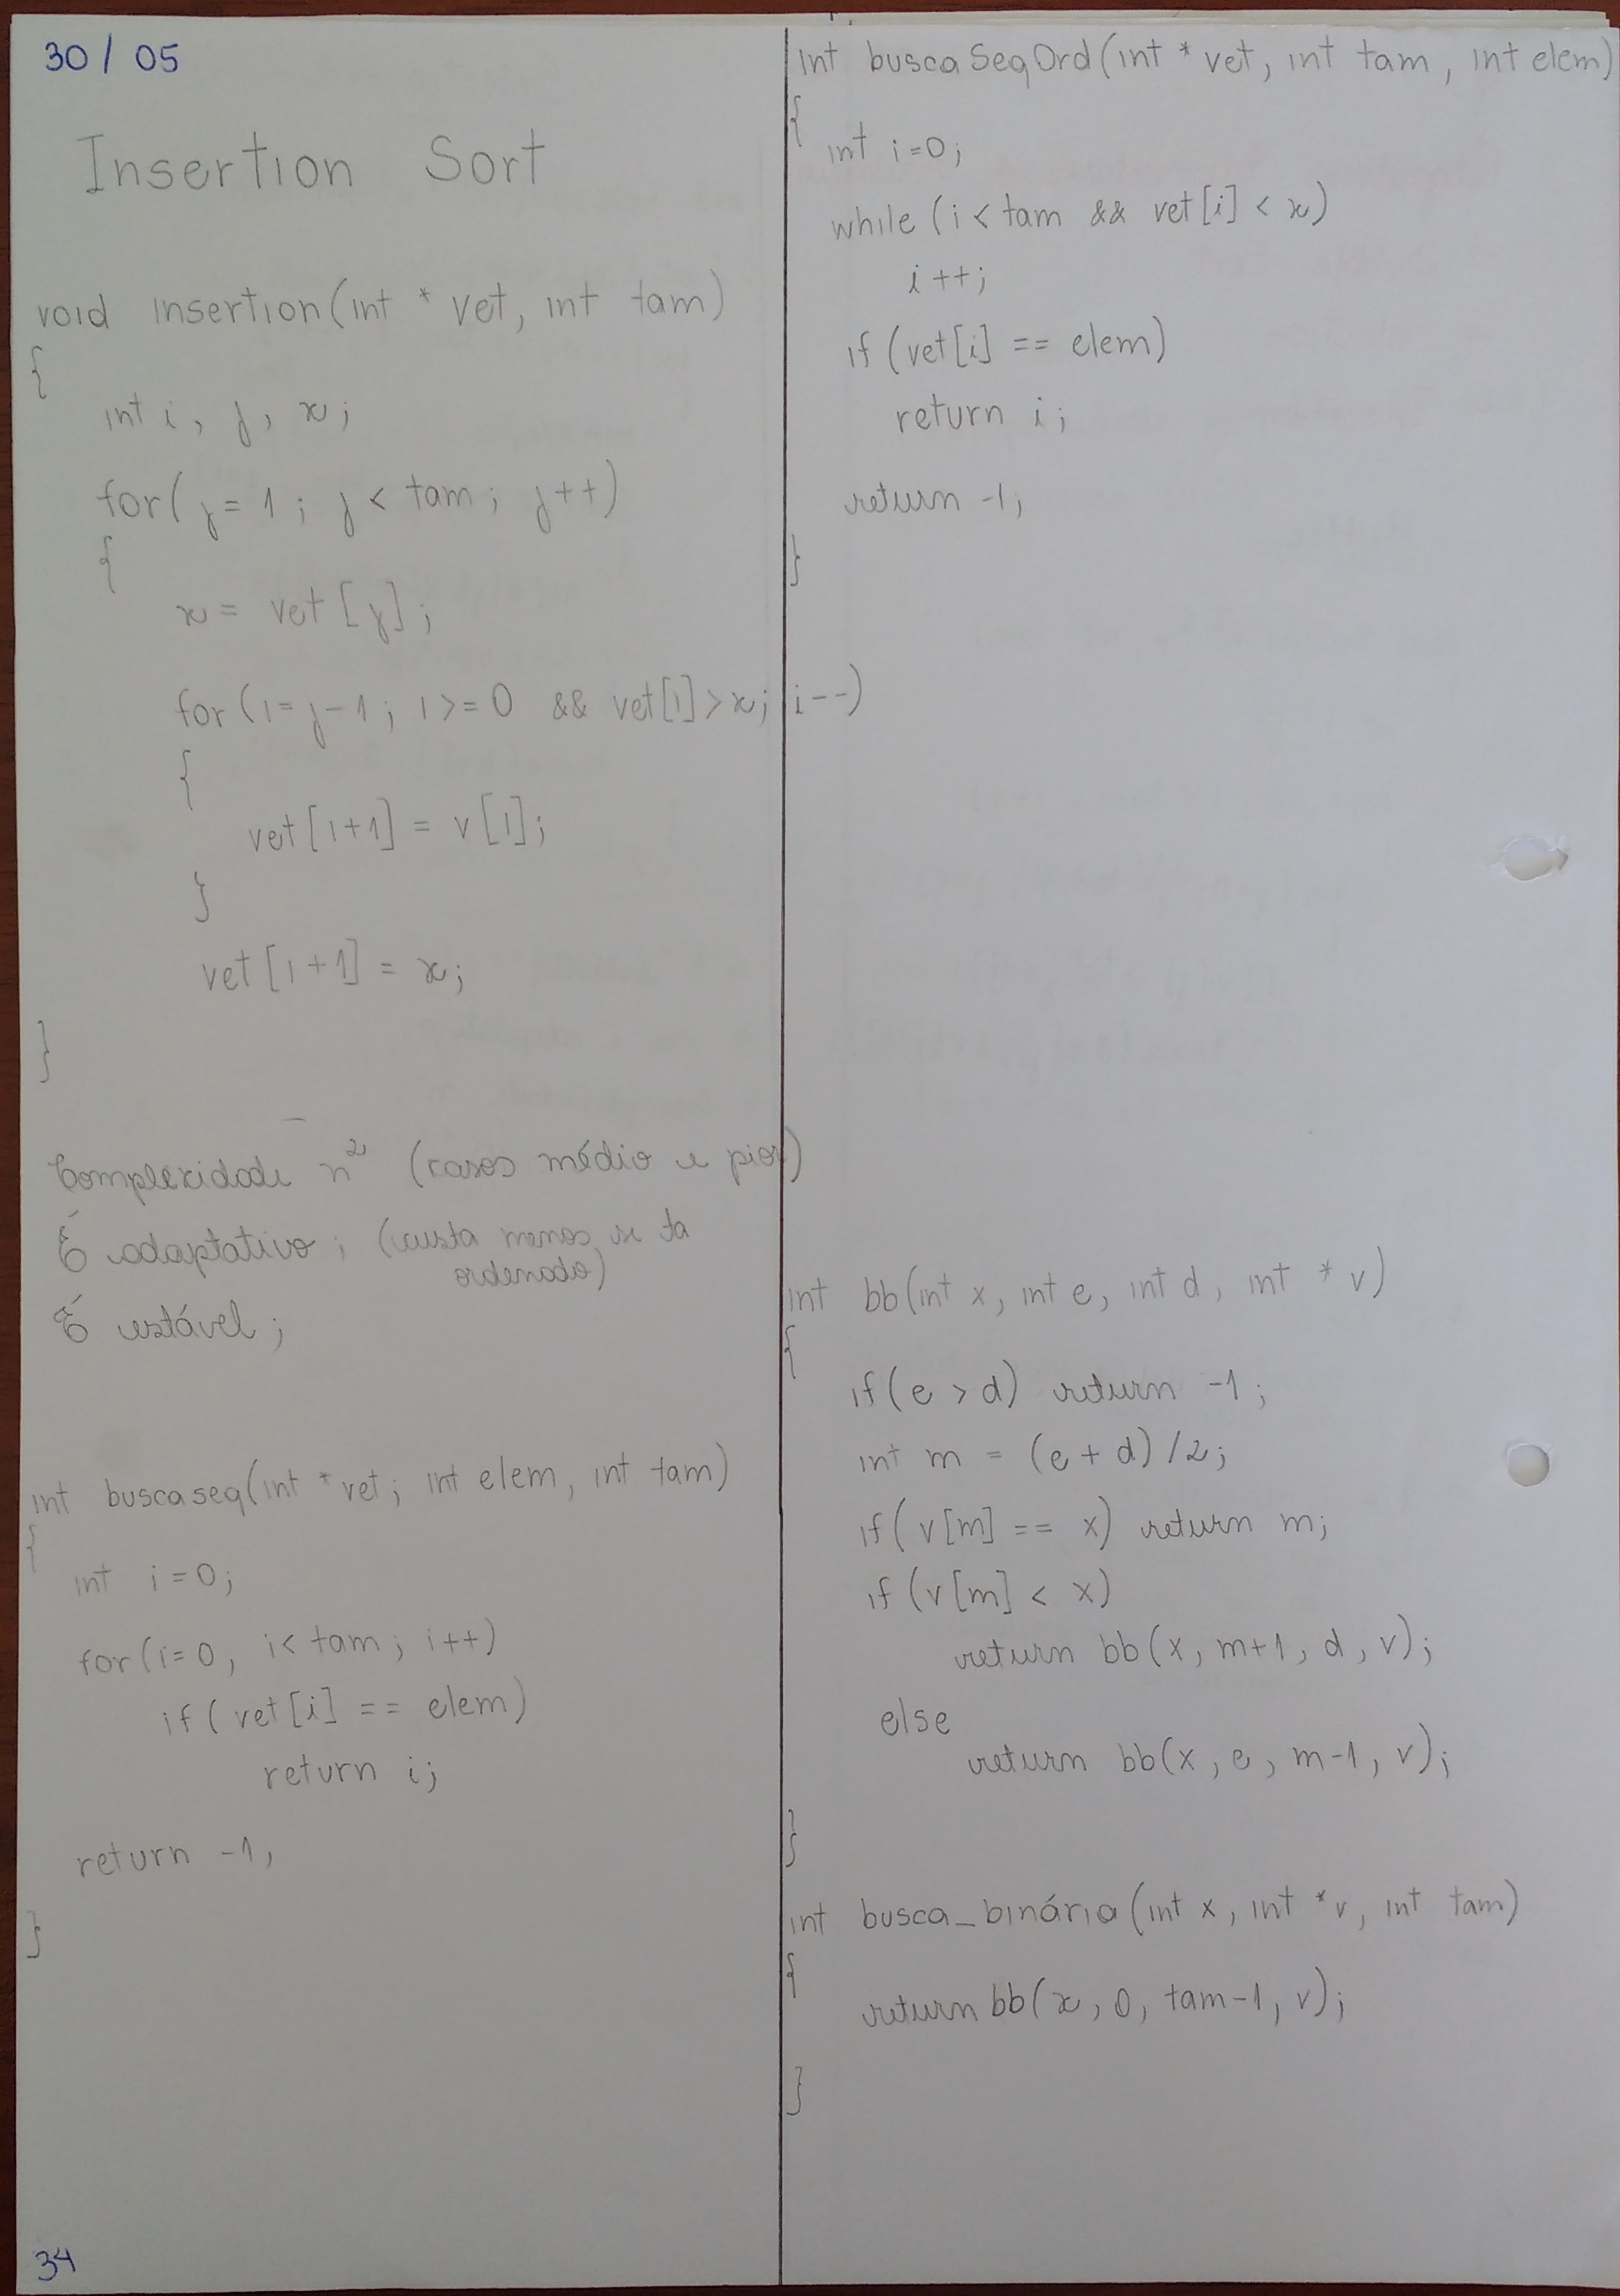 30/05
Insertion Sort
void insertion(int * vet, int tam)
{
int i, j, x;
for(j=1; j < tam; j++)
{
x = vet[j];
for(i=j-1; i>=0 && vet[i]>x; i--)
{
vet[i+1] = v[i];
}
vet[i+1] = x;
}
Complexidade n² (casos médio e pior)
É adaptativo; (custa menos se ta
ordenado)
É estável;
int buscaseq(int * vet; int elem, int tam)
{
int i=0;
for(i=0, i< tam; i++)
if(vet[i] == elem)
return i;
return -1,
}
34
int buscaSeqOrd(int * vet, int tam, int elem)
{
int i=0;
while (i < tam && vet[i] < x)
i++;
if(vet[i] == elem)
return i;
return -1;
}
int bb(int x, int e, int d, int * v)
{
if(e > d) return -1;
int m = (e + d) /2;
if(v[m] == x) return m;
if(v[m] < x)
return bb(x, m+1, d, v);
else
return bb(x, e, m-1, v);
}
int busca_binária(int x, int *v, int tam)
{
return bb(x, 0, tam-1, v);
}